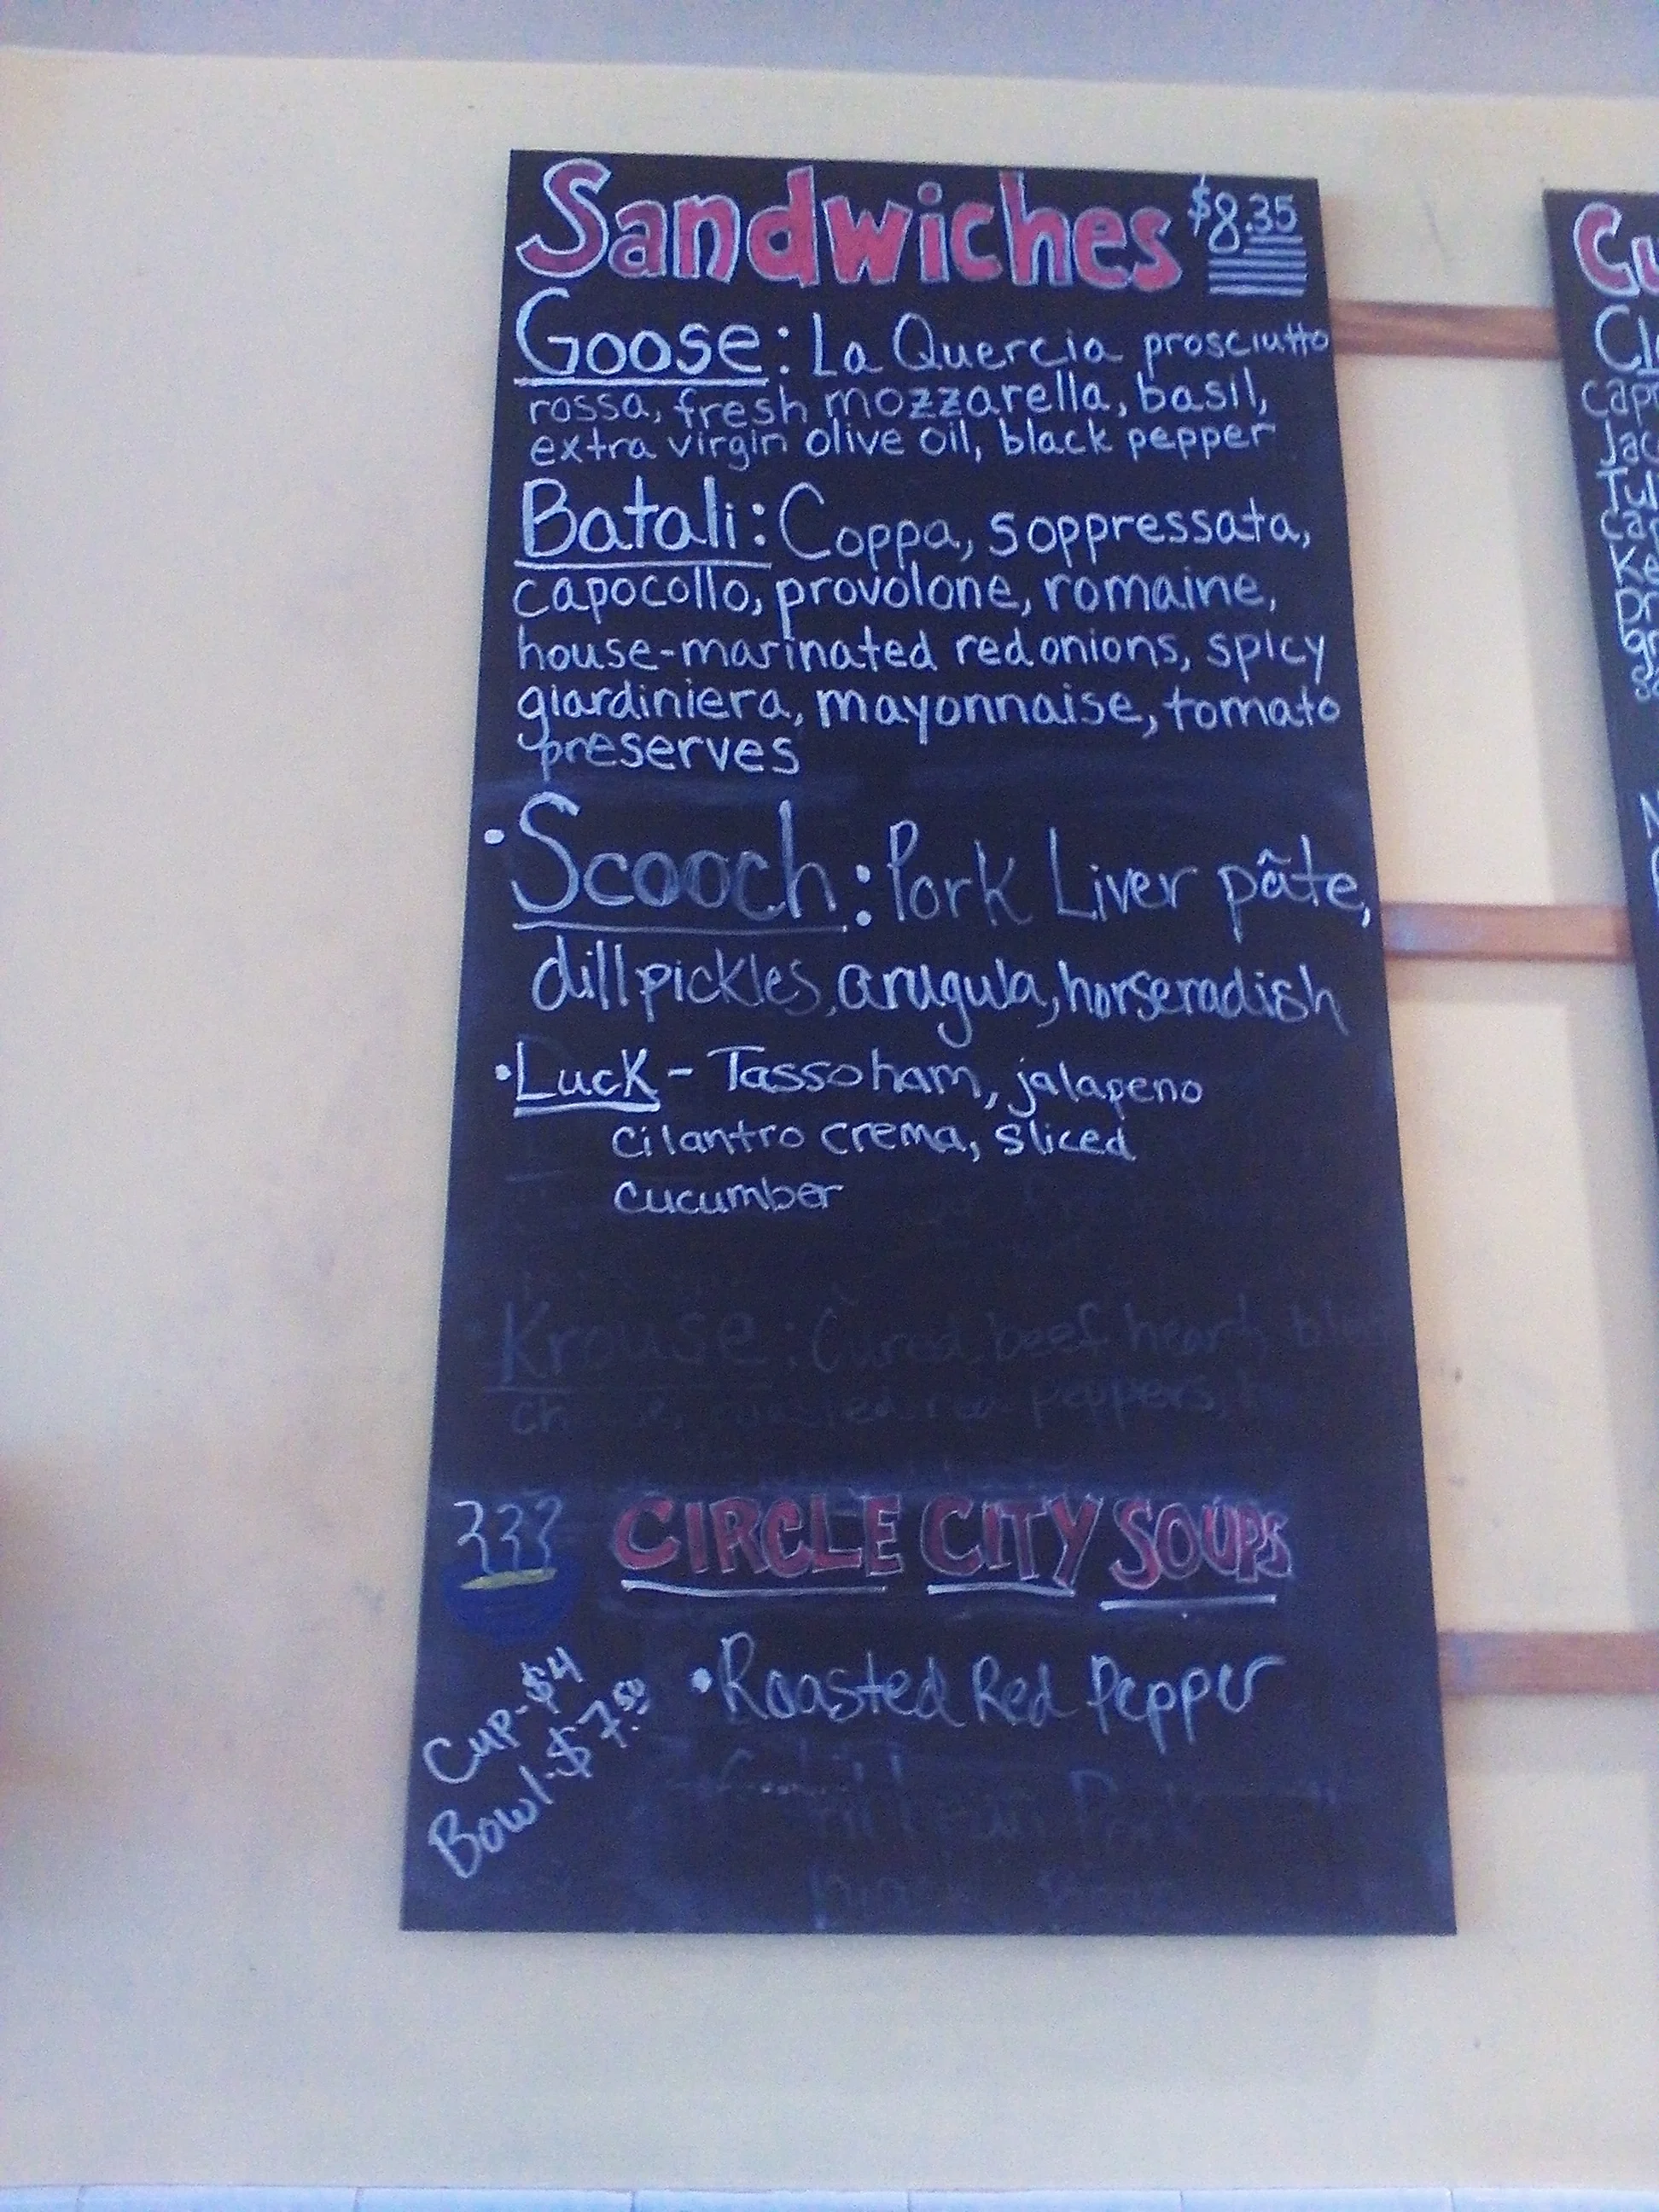 Sandwiches $8.35
Goose: La Quercia prosciutto
rossa, fresh mozzarella, basil,
extra virgin olive oil, black pepper
Batali: Coppa, soppressata,
capocollo, provolone, romaine,
house-marinated red onions, spicy
giardiniera, mayonnaise, tomato
preserves
• Scooch: Pork Liver pâte,
dill pickles, arugula, horseradish
• Luck - Tasso ham, jalapeno
cilantro crema, sliced
cucumber
Krouse: Cured beef heart,
peppers,
CIRCLE CITY SOUPS
Cup-$4
Bowl-$7.50
• Roasted Red Pepper
Cu